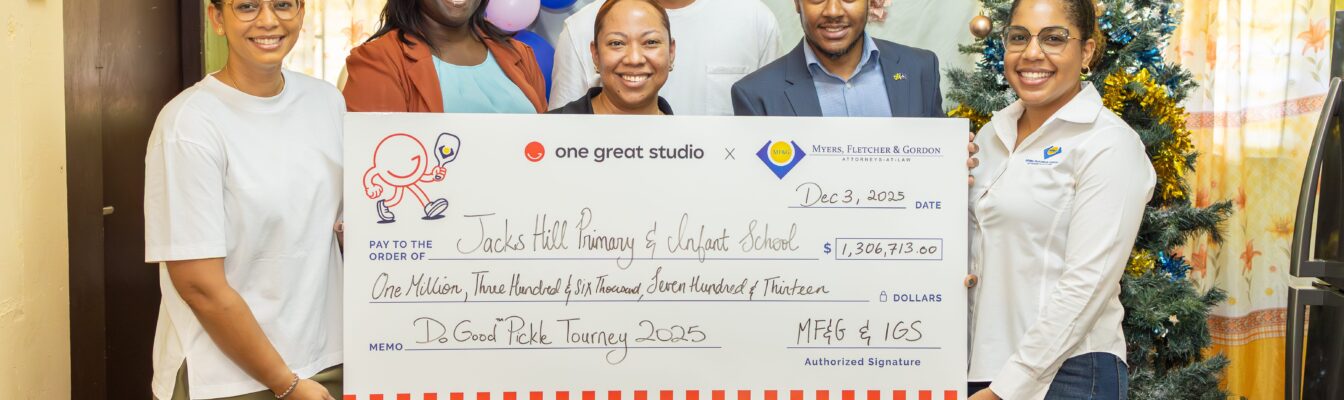 one great studio x MYERS, FLETCHER & GORDON
MF&G
ATTORNEYS-AT-LAW
Dec 3, 2025 DATE
PAY TO THE
ORDER OF Jacks Hill Primary & Infant School $ 1,306,713.00
One Million, Three Hundred & Six Thousand, Seven Hundred & Thirteen DOLLARS
MEMO Do Good™ Pickle Tourney 2025 MF&G & 1GS
Authorized Signature